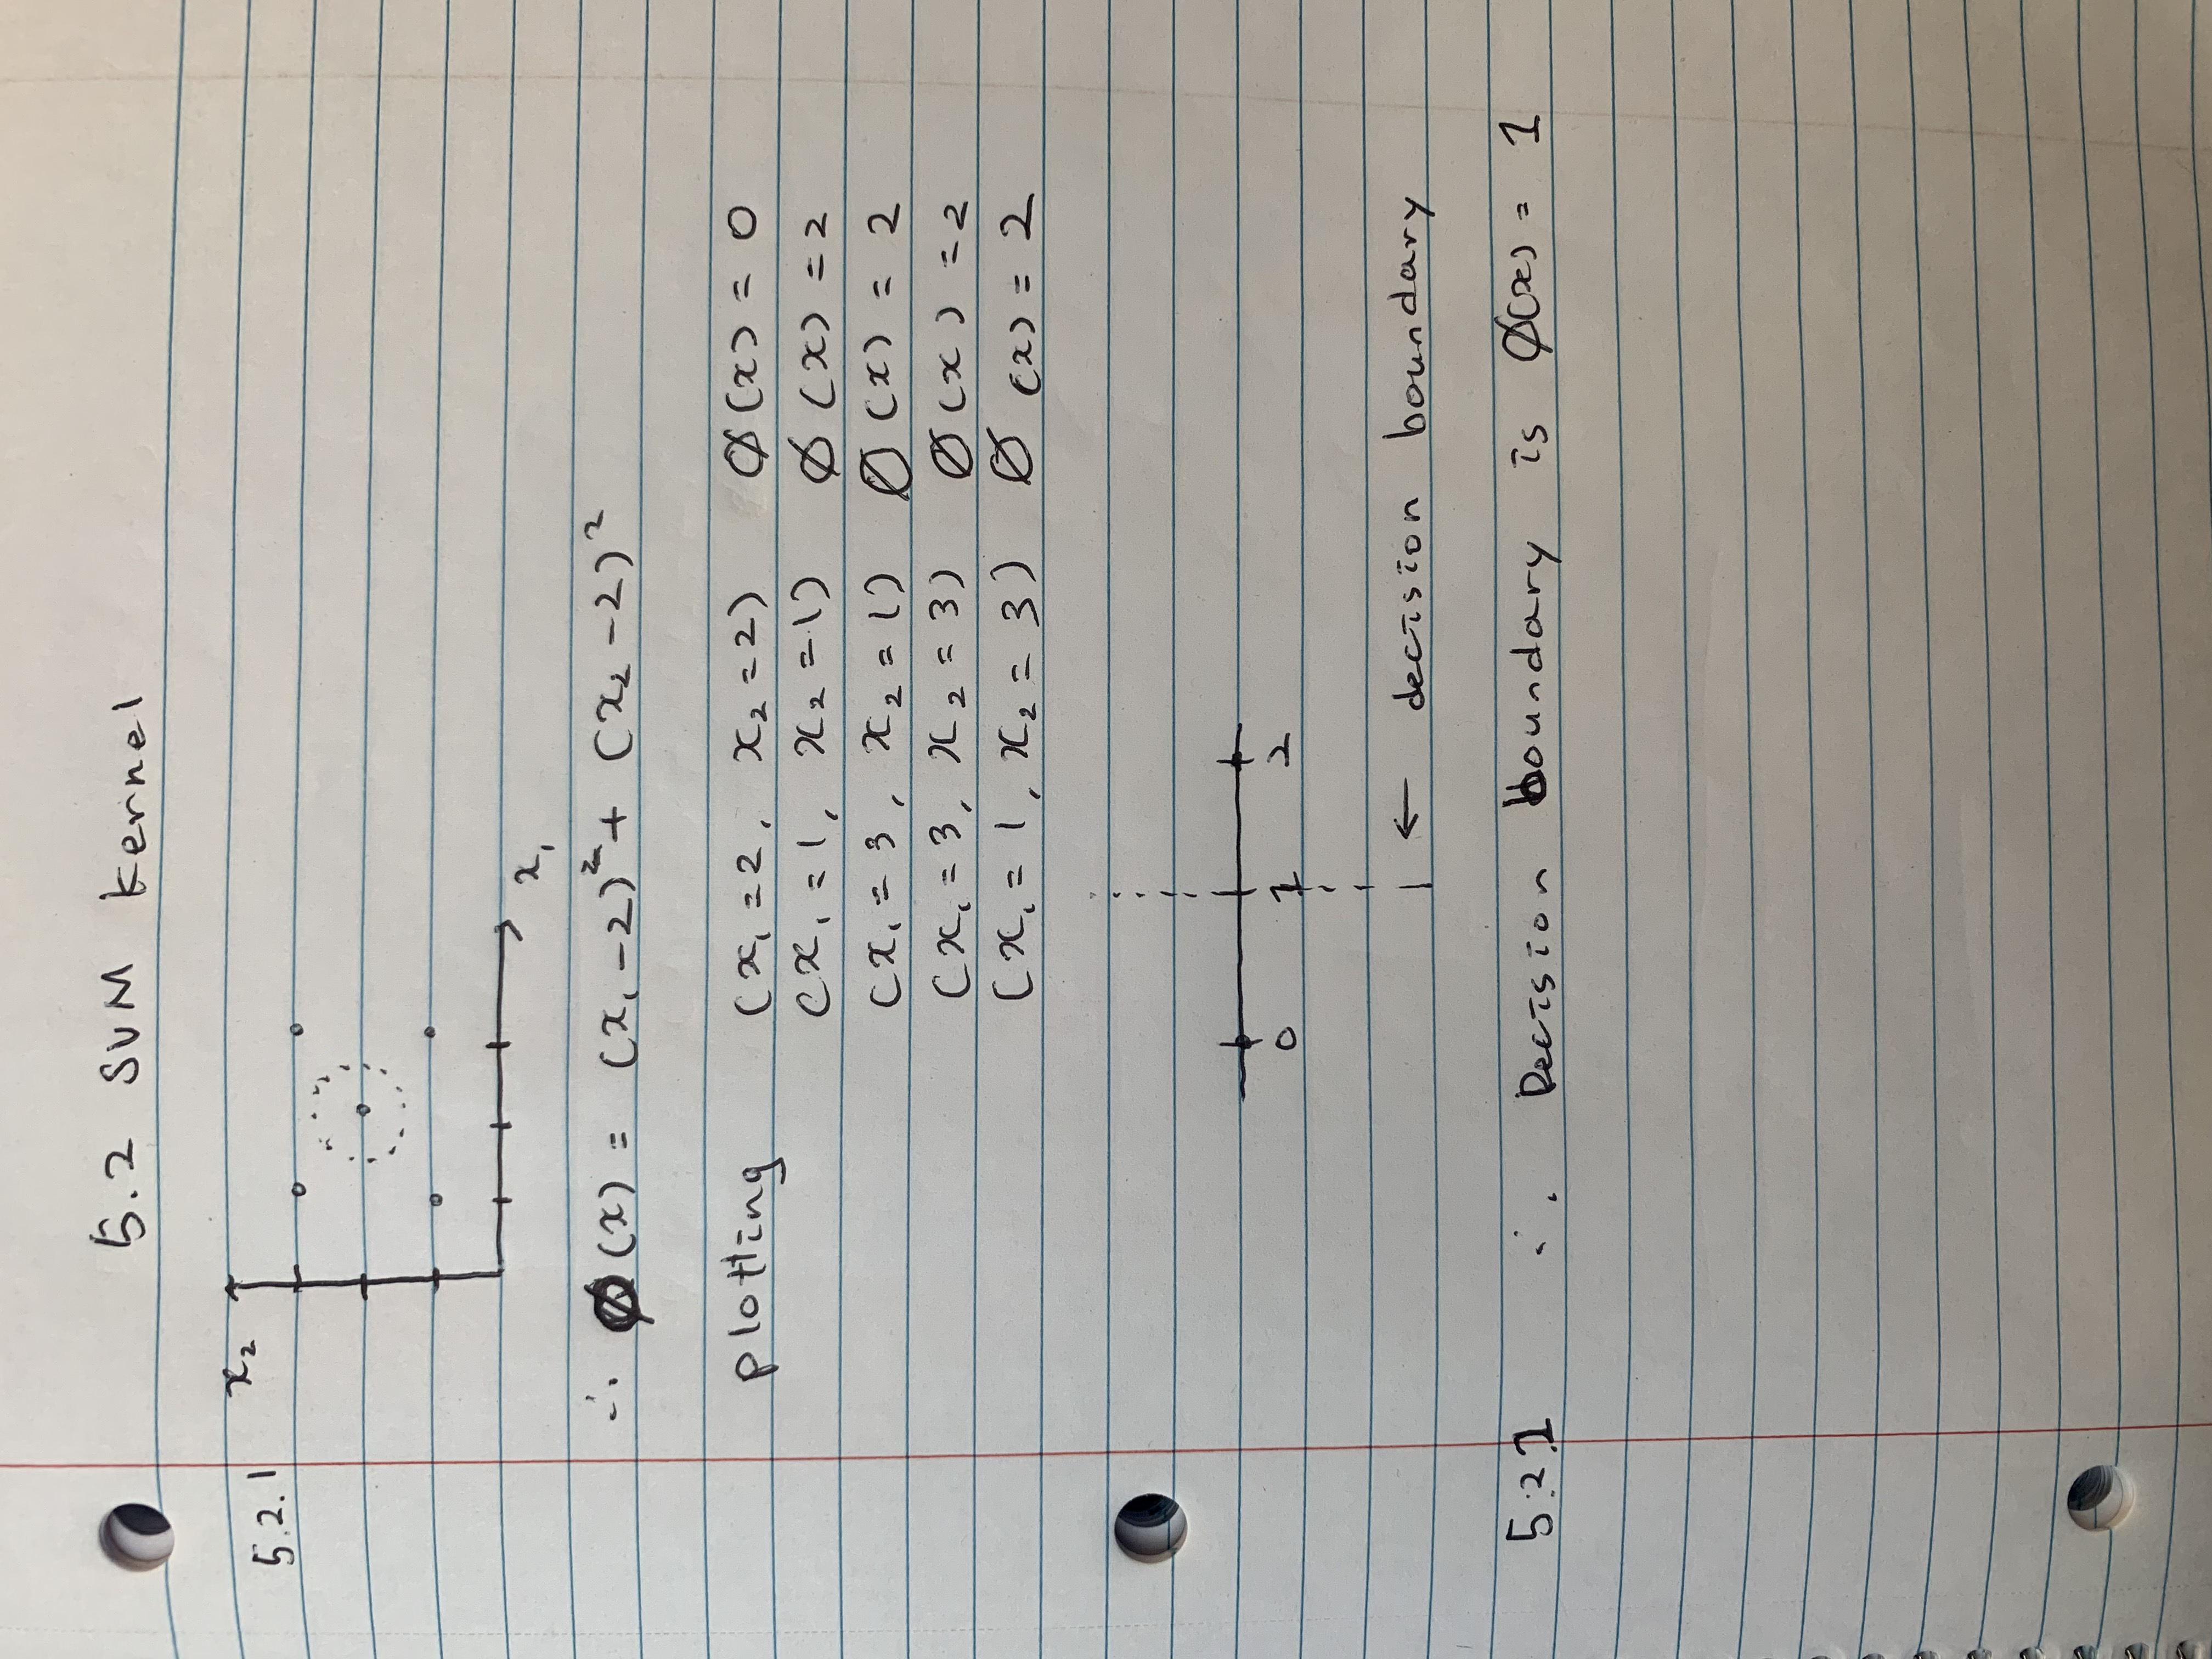 5.2 SVM Kernel
5.2.1
x₂
x₁
∴ Ø(x) = (x₁-2)² + (x₂-2)²
plotting (x₁=2, x₂=2) Ø(x) = 0
(x₁=1, x₂=1) Ø(x) = 2
(x₁=3, x₂=1) Ø(x) = 2
(x₁=3, x₂=3) Ø(x) = 2
(x₁=1, x₂=3) Ø(x) = 2
0 1 2
← decision boundary
5.2.2 ∴ Decision boundary is Ø(x) = 1